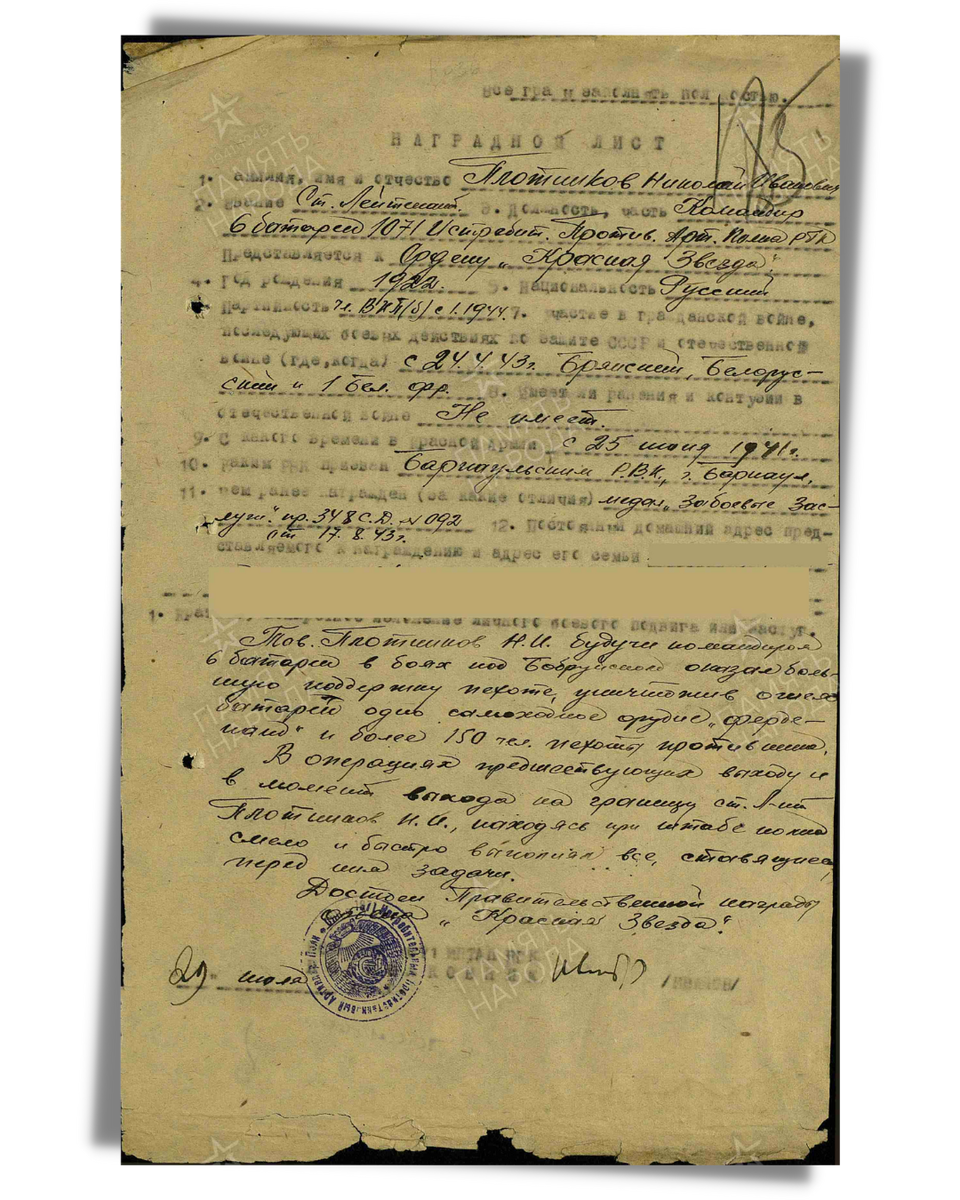 Все гра и заполнять пол остью.
НАГРАДНОЙ ЛИСТ
1. амилия, имя и отчество Плотников Николай Иванович
2. Звание Ст. Лейтенант. 3. Должность, часть Командир
6 батареи 1071 Истребит. Против. Арт. Полка РГК
Представляется к Ордену „Красная Звезда".
4. Год рождения 1922. 5. Национальность Русский
Партийность чл. ВКП(б) с 1.1944. 7. Участие в гражданской войне,
последующих боевых действиях по защите СССР и отечественной
войне (где, когда) с 24.4.43г. Брянский, Белорус-
ский и 1 Бел. фр. 8. Имеет ли ранения и контузии в
отечественной войне Не имеет.
9. С какого времени в Красной Армии с 25 июня 1941г.
10. Каким РВК призван Барнаульским Р.В.К., г. Барнаул,
11. Чем ранее награжден (за какие отличия) медал. „За боевые Зас-
луги". пр. 348 С.Д. № 092
от 17.8.43г. 12. Постоянный домашний адрес пред-
ставляемого к награждению и адрес его семьи
1. изложение личного боевого подвига или заслуг.
Тов. Плотников Н.И. будучи командиром
6 батареи в боях под Бобруйском оказал боль-
шую поддержку пехоте, уничтожив огнем
батареи одно самоходное орудие „ферде-
нанд" и более 150 чел. пехоты противника.
В операциях предшествующих выходу и
в момент выхода на границу ст. Л-нт
Плотников Н.И., находясь при штабе полка
смело и быстро выполнял все, ставящиеся
перед ним задачи.
Достоен Правительственной награды
„Красная Звезда".
29 июля
/ИВАНОВ/
ПАМЯТЬ НАРОДА